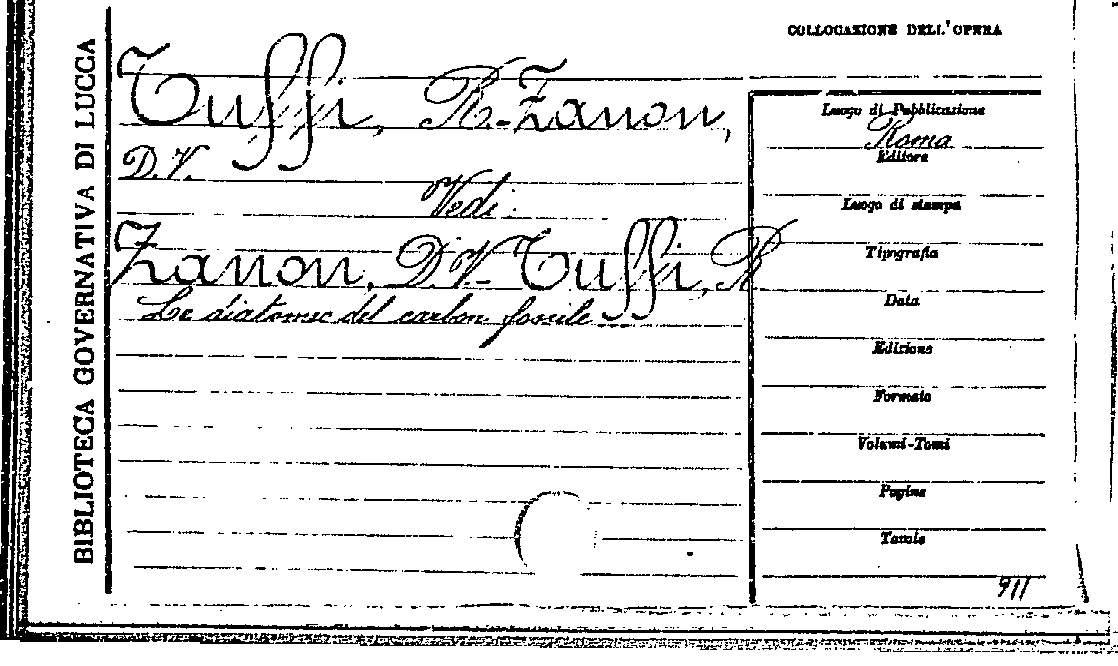 BIBLIOTECA GOVERNATIVA DI LUCCA
Tuffi, R.-Zanon,
D.V.
Vedi:
Zanon, D.V.-Tuffi, R
Le diatomee del carbon fossile
COLLOCAZIONE DELL'OPERA
Luogo di Pubblicazione
Roma
Editore
Luogo di stampa
Tipografia
Data
Edizione
Formato
Volumi-Tomi
Pagine
Tavole
911